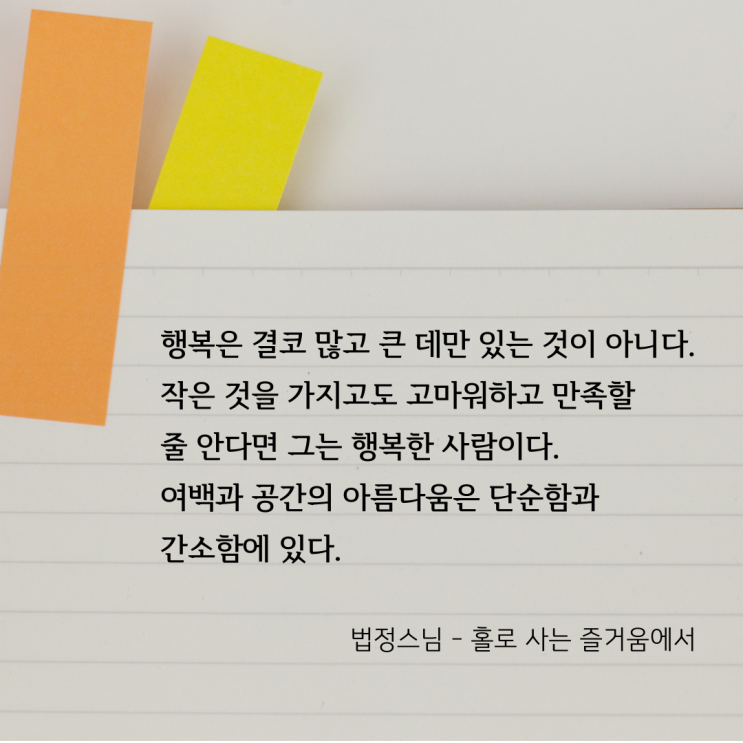 행복은 결코 많고 큰 데만 있는 것이 아니다.
작은 것을 가지고도 고마워하고 만족할
줄 안다면 그는 행복한 사람이다.
여백과 공간의 아름다움은 단순함과
간소함에 있다.
법정스님 - 홀로 사는 즐거움에서